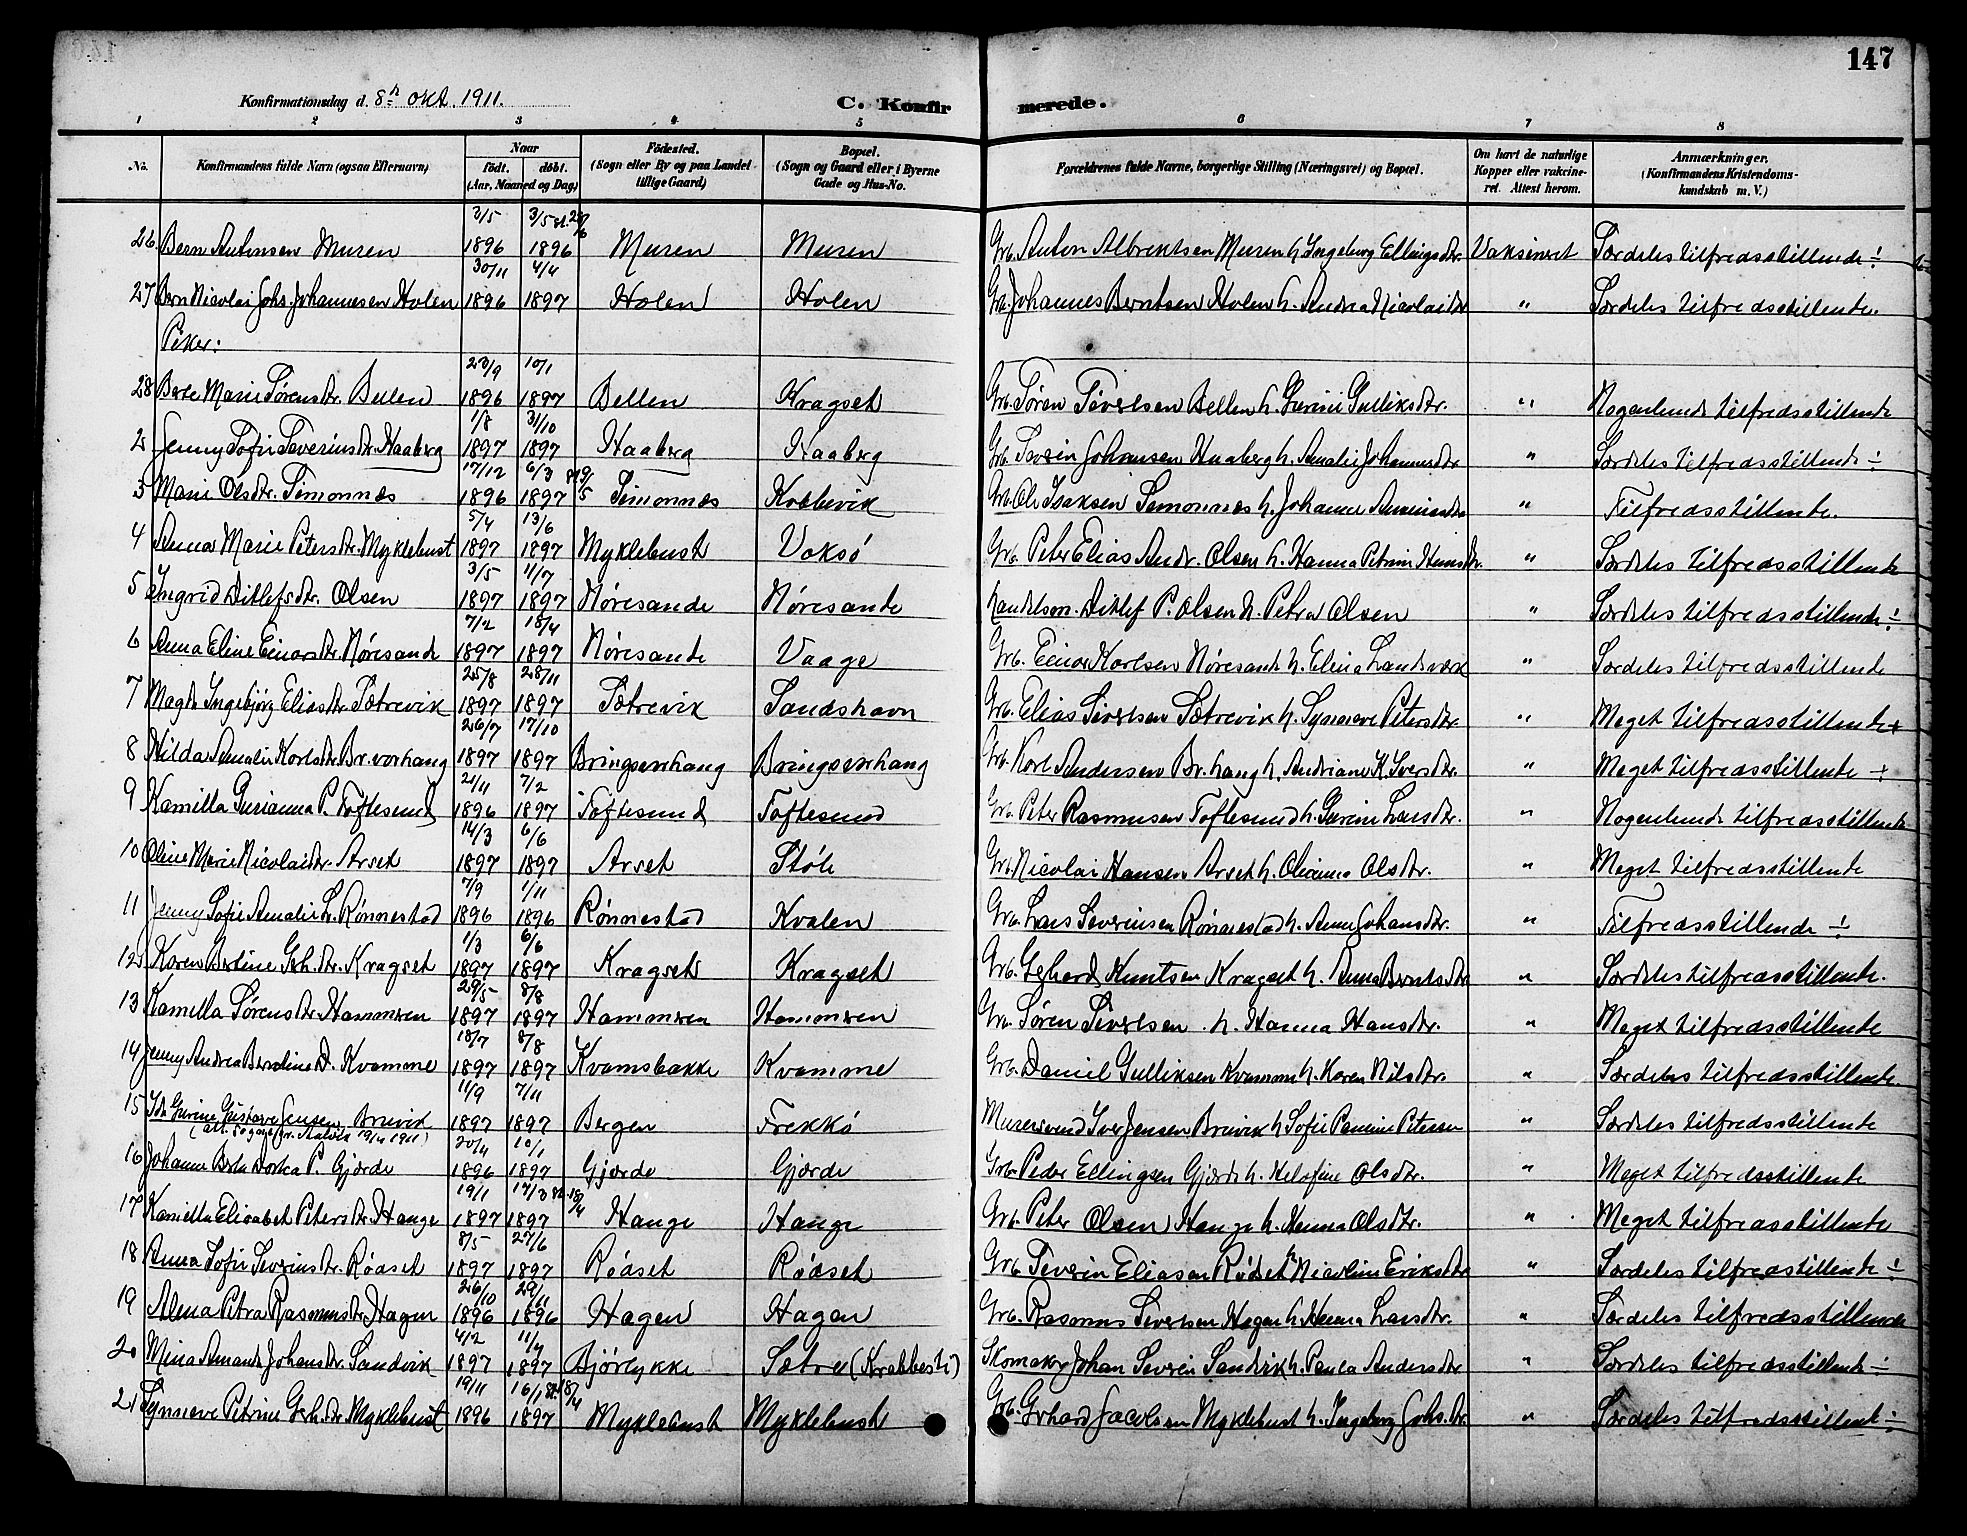 147
Konfirmationsdag d. 8de okt. 1911. C. Konfirmerede.
1 2 3 4 5 6 7 8
No. Konfirmandens fulde Navn (ogsaa Efternavn) Naar født. døbt. (Aar, Maaned og Dag) Fødested. (Sogn eller By og paa Landet tillige Gaard) Bopæl. (Sogn og Gaard eller i Byerne Gade og Hus-No. Forældrenes fulde Navne, borgerlige Stilling (Næringsvei) og Bopæl. Om havt de naturlige Kopper eller vakcineret. Attest herom. Anmærkninger. (Konfirmandens Kristendomskundskab m. V.)
26 Bern Antonsen Muren 2/5 1896 3/5 1896 Muren Muren Grb. Anton Albrektsen Muren h. Ingeborg Ellingsdtr. Vaksineret Særdeles tilfredsstillende ÷
27 Bern Nicolai Johs. Johannesen Holen 30/11 1896 4/4 1897 Holen Holen Grb. Johannes Berntsen Holen h. Andrea Nicolaidtr " Særdeles tilfredsstillende.
Piker:
28 Berte Marie Sørensdtr. Bellen 23/9 1896 10/1 1897 Bellen Kragset Grb. Søren Sivertsen Bellen h. Gurine Gulliksdtr. " Nogenlunde tilfredsstillende
2 Jenny Sofie Severinsdtr. Haaberg 1/8 1897 31/10 1897 Haaberg Haaberg Grb. Severin Johansen Haaberg h. Amalie Johannesdtr " Særdeles tilfredsstillende ÷
3 Marie Olsdtr. Simonnæs 17/12 1896 6/3 1897 Simonnæs Kobbevik Grb. Ole Isaksen Simonnæs h. Johanne " Tilfredsstillende.
4 Anna Marie Petersdtr. Myklebust 5/4 1897 13/6 1897 Myklebust Voksø Grb. Peter Elias Andr. Olsen h. Hanna Petrine Hansdtr. " Særdeles tilfredsstillende
5 Ingrid Ditlefsdtr. Olsen 3/5 1897 11/7 1897 Nøresande Nøresande Handelsm. Ditlef P. Olsen h. Petra Olsen " Særdeles tilfredsstillende ÷
6 Anna Eline Einarsdtr. Nøresande 7/2 1897 18/4 1897 Nøresande Vaage Grb. Einar Karlsen Nøresande h. Elina Landsværk " Særdeles tilfredsstillende
7 Magda Ingebjørg Eliasdtr. Sætrevik 25/8 1897 28/11 1897 Sætrevik Sandshavn Grb. Elias Sivertsen Sætrevik h. Synneve Petersdtr. " Meget tilfredsstillende +
8 Hilda Amalie Karlsdtr. Br.vorhaug 26/7 1897 17/10 1897 Bringsvorhaug Bringsvorhaug Grb. Karl Andersen Br.haug h. Andriane K. Iversdtr. " Meget tilfredsstillende ÷
9 Kamilla Gurianna P. Toftesund 21/11 1896 7/2 1897 Toftesund Toftesund Grb. Peter Rasmusen Toftesund h. Gurine Larsdtr. " Nogenlunde tilfredsstillende
10 Oline Marie Nicolaidtr. Arset 14/3 1897 6/6 1897 Arset Støle Grb. Nicolai Hansen Arset h. Olianna Olsdtr. " Meget tilfredsstillende
11 Jenny Sofie Amalie L. Rønnestad 7/9 1896 1/11 1896 Rønnestad Kvalen Grb. Lars Severinsen Rønnestad h. Anne Johansdtr. " Tilfredsstillende ÷
12 Karen Bertine Geh.dtr. Kragset 1/3 1897 6/6 1897 Kragset Kragset Grb. Gehard Knutsen Kragset h. Anna Berntsdtr " Særdeles tilfredsstillende.
13 Kamilla Sørensdtr. Hammeren 29/5 1897 8/8 1897 Hammeren Hammeren Grb. Søren Sivertsen h. Hanna Hansdtr. " Meget tilfredsstillende
14 Jenny Andrea Berdine D. Kvamme 18/7 1897 8/8 1897 Kvamsbakke Kvamme Grb. Daniel Gulliksen Kvamme h. Karen Nilsdtr. " Særdeles tilfredsstillende.
15 Ida Gurine Gustava Jensen Brevik 11/9 1897 7/11 1897 Bergen Frekkø Murersvend Iver Jensen Brevik h. Sofie Pauline Petersen " Særdeles tilfredsstillende
16 Johanne Berta Dorka P. Gjærde 20/11 1896 10/1 1897 Gjærde Gjærde Grb. Peder Ellingsen Gjærde h. Olsdtr. " Meget tilfredsstillende
17 Kamilla Elisabet Petersdtr. Hauge 19/11 1897 17/3 1897 Hauge Hauge Grb. Peter Olsen Hauge h. Hanna Olsdtr. " Meget tilfredsstillende
18 Anna Sofie Severinsdtr. Røaset 8/5 1897 27/6 1897 Røaset Røaset Grb. Severin Eliasen Røaset h. Nicoline Eriksdtr " Særdeles tilfredsstillende ÷
19 Alma Petra Rasmusdtr. Hagen 26/10 1896 29/11 1896 Hagen Hagen Grb. Rasmus Sivertsen Hagen h. Hanna Larsdtr. " Særdeles tilfredsstillende
20 Mina Amanda Johansdtr. Sandvik 4/2 1897 11/4 1897 Bjørlykke Sætre (Krabbesti) Skomaker Johan Severin Sandvik h. Paula Andersdtr " Særdeles tilfredsstillende ÷
21 Synneve Petrine Geh.dtr. Myklebust 19/11 1896 16/1 1897 Myklebust Myklebust Grb. Gerhard Jacobsen Myklebust h. Ingeborg Johs.dtr. " Særdeles tilfredsstillende ÷